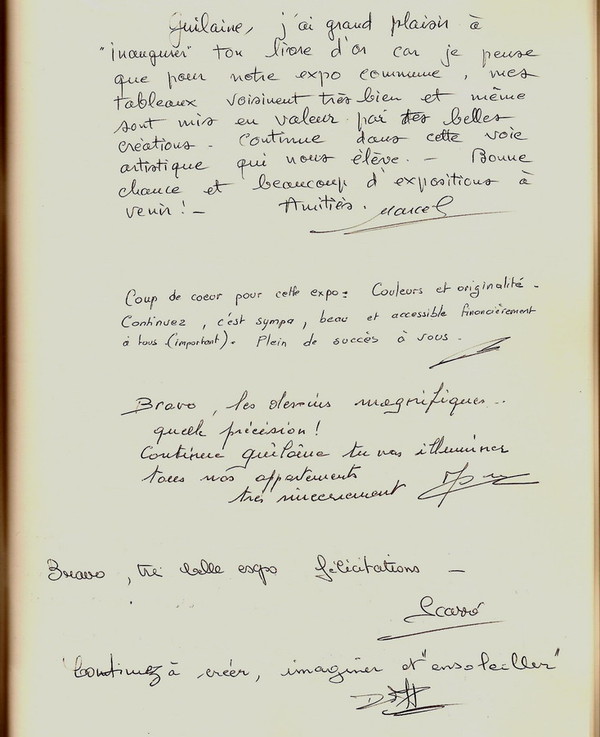 Guilaine, j'ai grand plaisir à
"inaugurer" ton livre d'or car je pense
que pour notre expo commune, mes
tableaux voisinent très bien et même
sont mis en valeur par tes belles
créations. Continue dans cette voie
artistique qui nous élève. – Bonne
chance et beaucoup d'expositions à
venir! – Amitiés. Marcel
Coup de coeur pour cette expo: Couleurs et originalité.
Continuez, c'est sympa, beau et accessible financièrement
à tous (important). Plein de succès à vous.
Bravo, les dessins magnifiques..
quelle précision!
Continue Guilaine tu vas illuminer
tous nos appartements
très sincèrement
Bravo, tré belle expo félicitations –
Continuez à créer, imaginer et "ensoleiller"